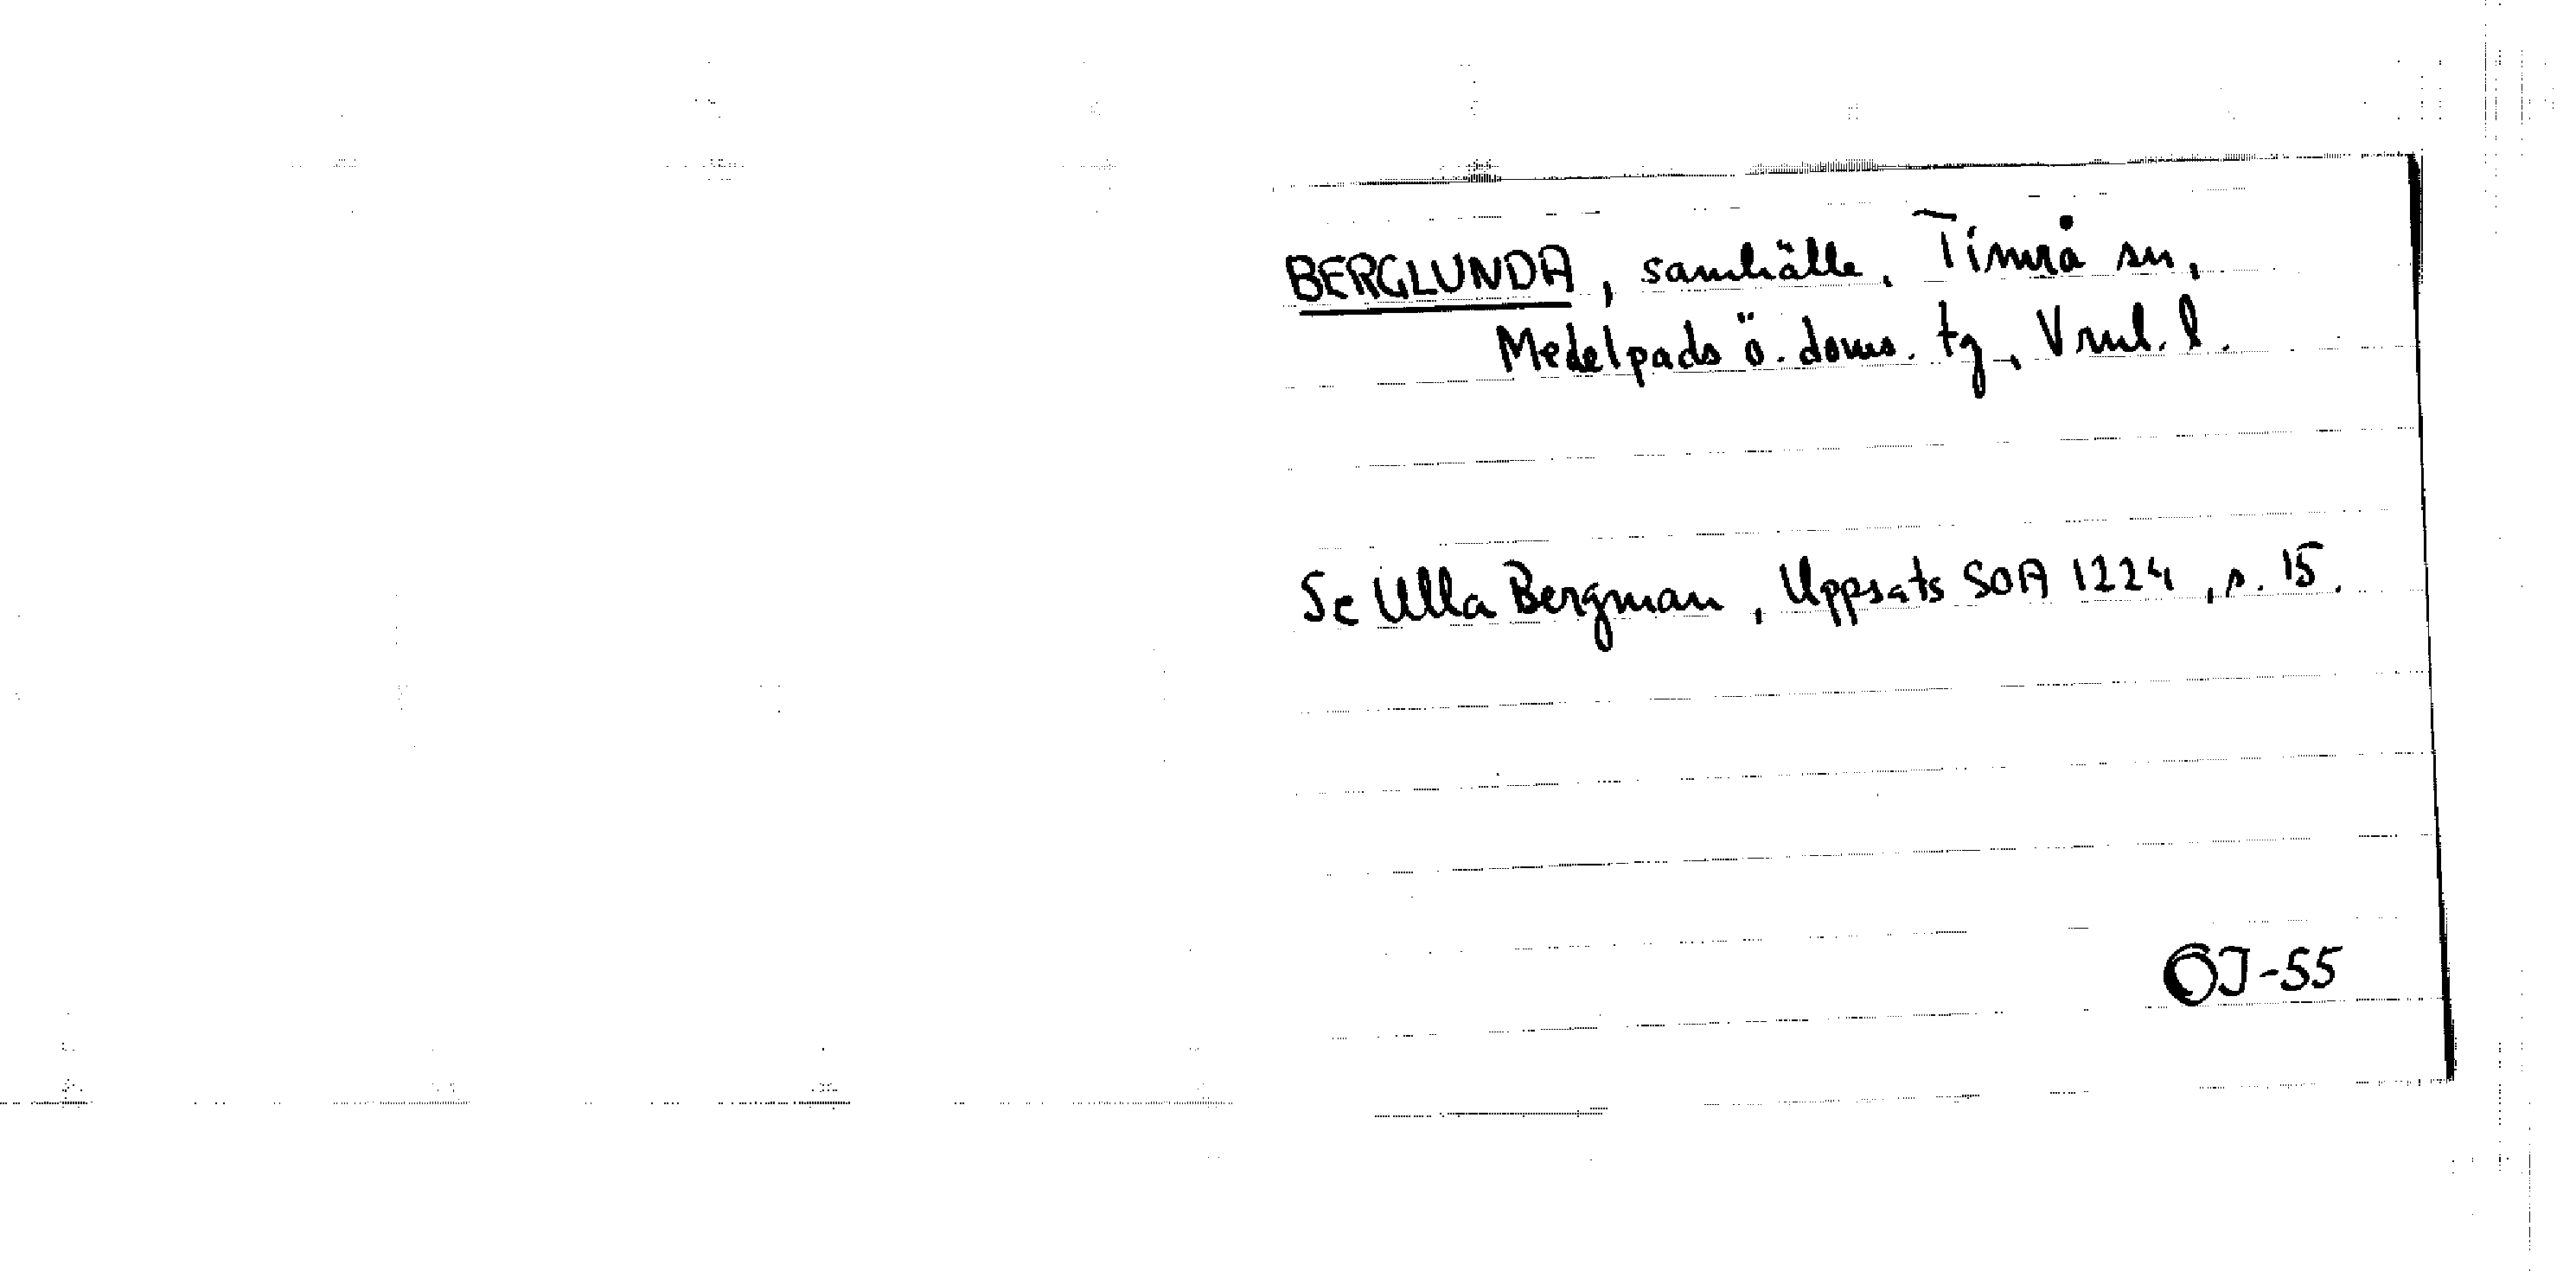 BERGLUNDA, samhälle, Timrå sn,
Medelpads ö. doms. tg, Vrnl. l.
Se Ulla Bergman, Uppsats SOA 1224, s. 15.
OJ-55